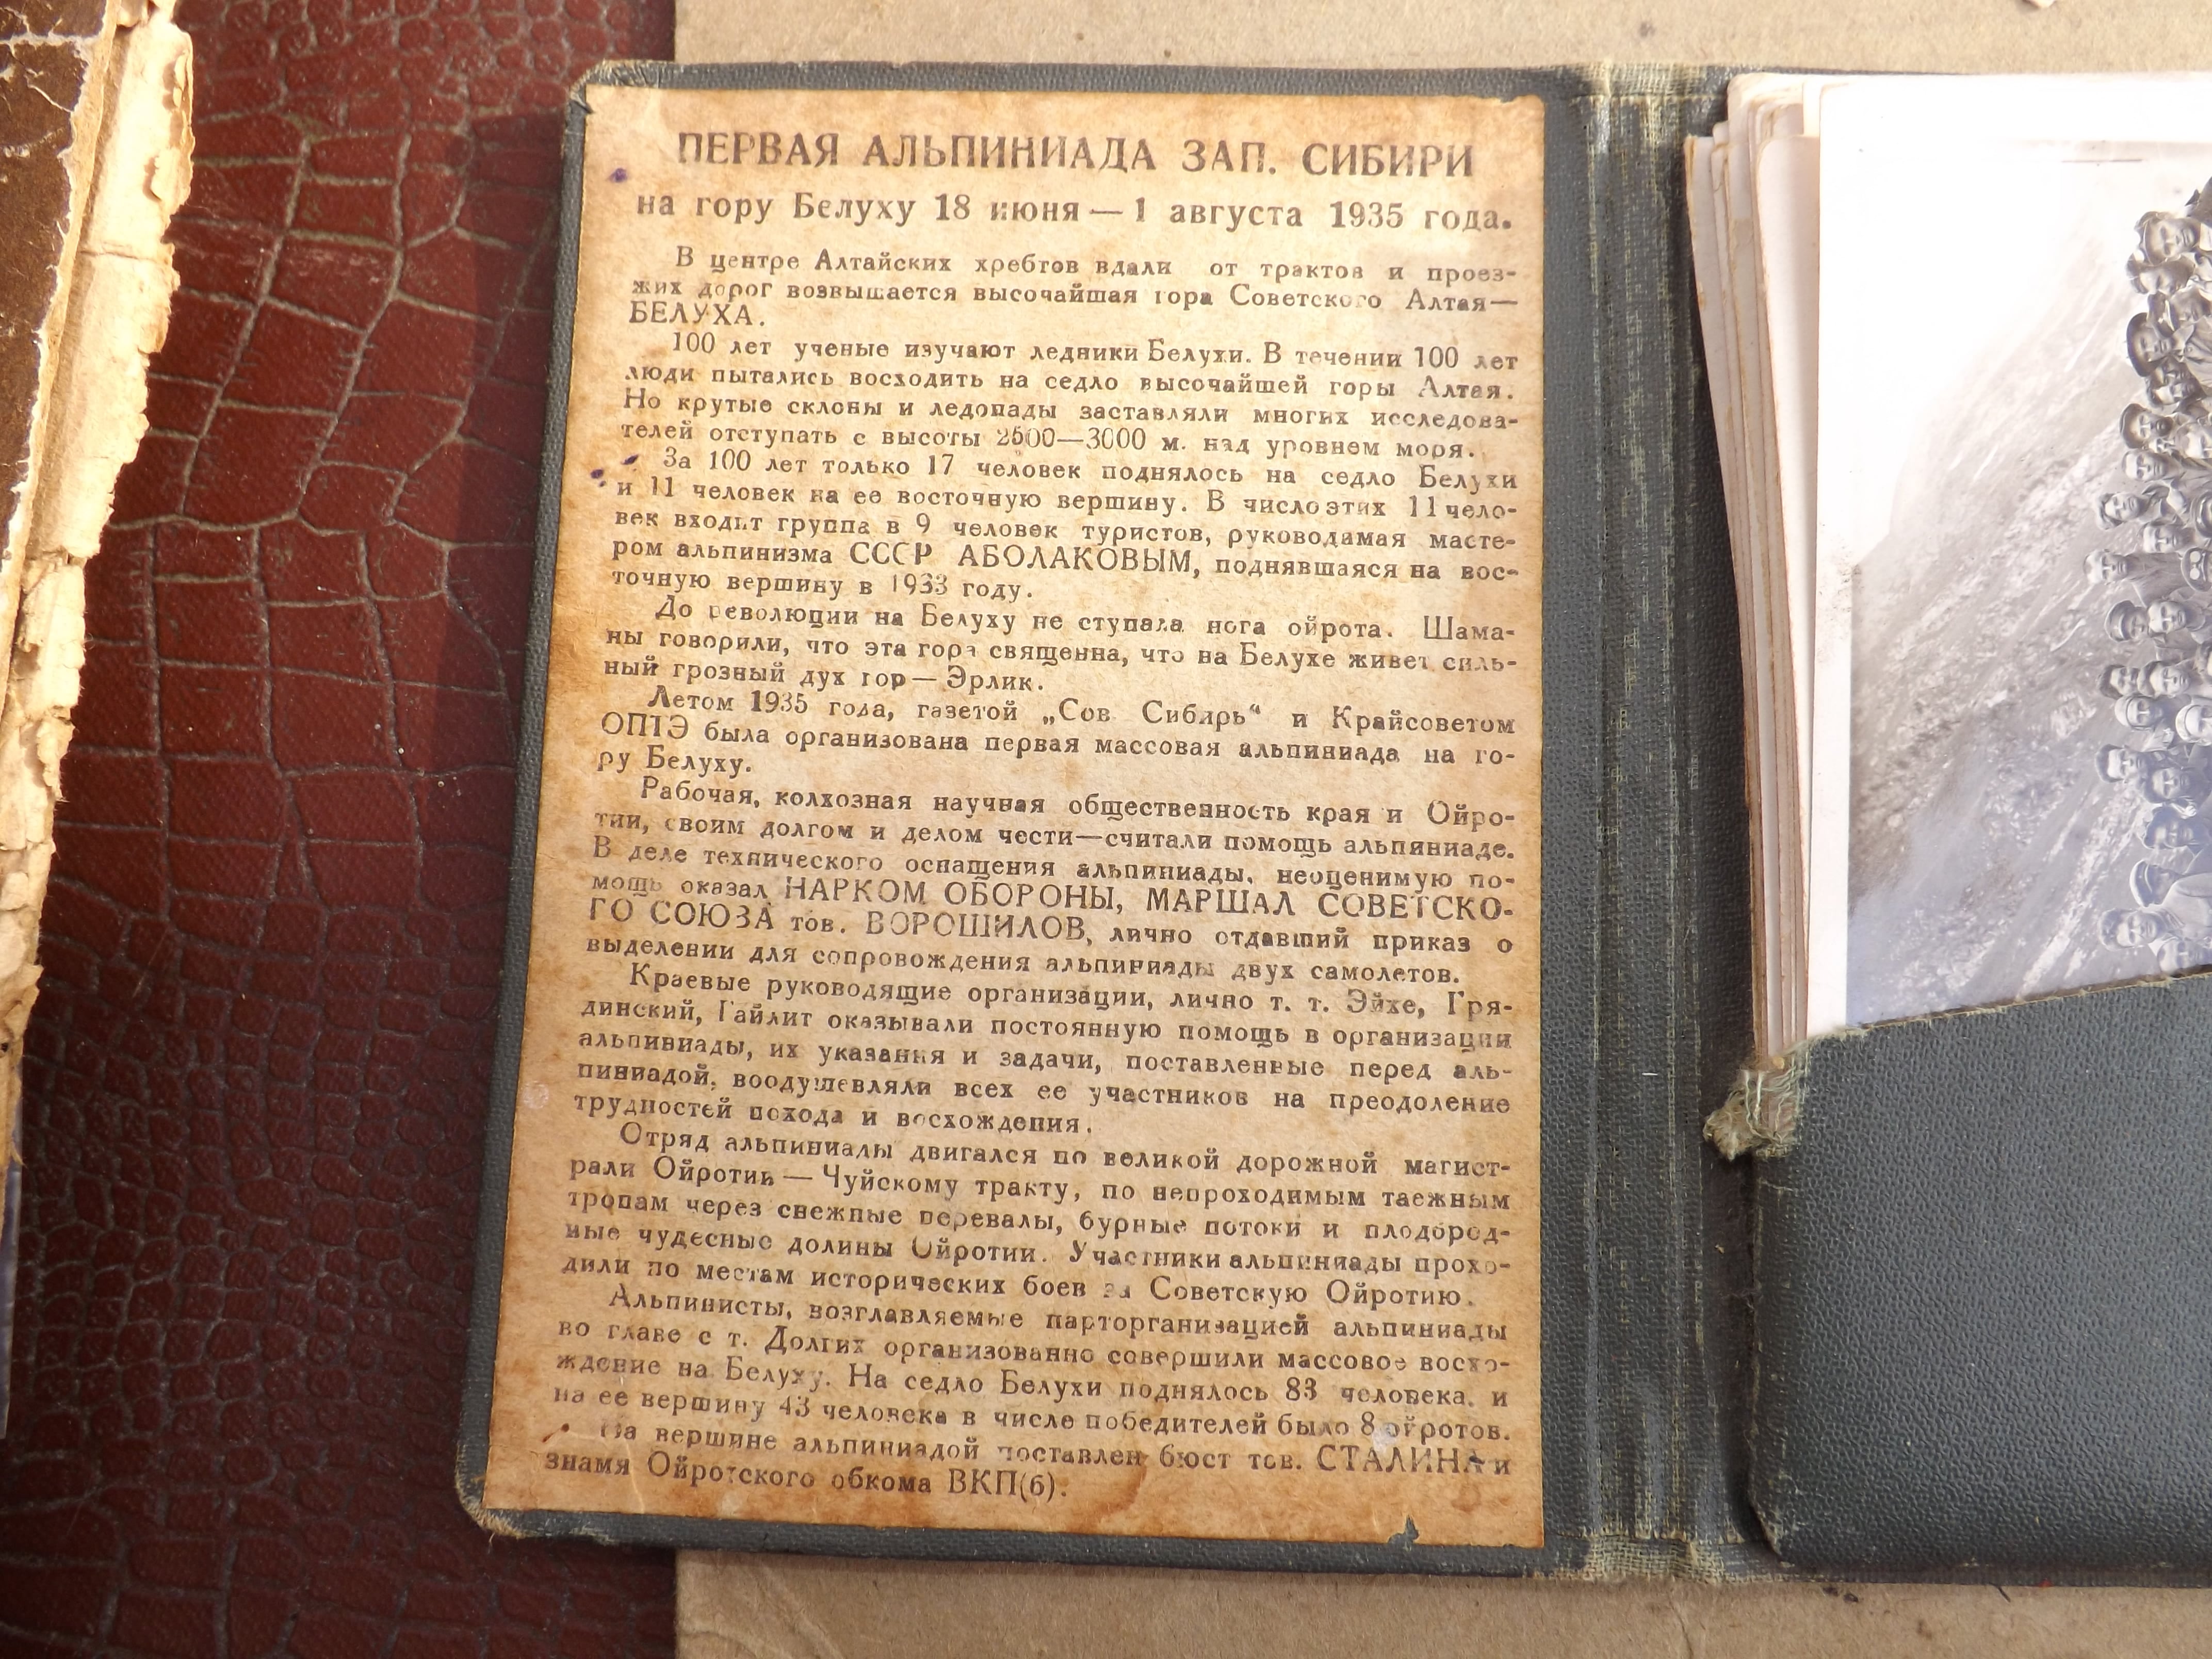 ПЕРВАЯ АЛЬПИНИАДА ЗАП. СИБИРИ
на гору Белуху 18 июня — 1 августа 1935 года.
В центре Алтайских хребтов вдали от трактов и проез-
жих дорог возвышается высочайшая гора Советского Алтая—
БЕЛУХА.
100 лет ученые изучают ледники Белухи. В течении 100 лет
люди пытались восходить на седло высочайшей горы Алтая.
Но крутые склоны и ледопады заставляли многих исследова-
телей отступать с высоты 2500—3000 м. над уровнем моря.
За 100 лет только 17 человек поднялось на седло Белухи
и 11 человек на ее восточную вершину. В число этих 11 чело-
век входит группа в 9 человек туристов, руководимая масте-
ром альпинизма СССР АБОЛАКОВЫМ, поднявшаяся на вос-
точную вершину в 1933 году.
До революции на Белуху не ступала нога ойрота. Шама-
ны говорили, что эта гора священна, что на Белухе живет силь-
ный грозный дух гор — Эрлик.
Летом 1935 года, газетой „Сов Сибирь“ и Крайсоветом
ОПТЭ была организована первая массовая альпиниада на го-
ру Белуху.
Рабочая, колхозная научная общественность края и Ойро-
тии, своим долгом и делом чести—считали помощь альпиниаде.
В деле технического оснащения альпиниады, неоценимую по-
мощь оказал НАРКОМ ОБОРОНЫ, МАРШАЛ СОВЕТСКО-
ГО СОЮЗА тов. ВОРОШИЛОВ, лично отдавший приказ о
выделении для сопровождения альпиниады двух самолетов.
Краевые руководящие организации, лично т. т. Эйхе, Гря-
динский, Гайлит оказывали постоянную помощь в организации
альпиниады, их указания и задачи, поставленные перед аль-
пиниадой, воодушевляли всех ее участников на преодоление
трудностей похода и восхождения.
Отряд альпиниады двигался по великой дорожной магист-
рали Ойротии — Чуйскому тракту, по непроходимым таежным
тропам через снежные перевалы, бурные потоки и плодород-
ные чудесные долины Ойротии. Участники альпиниады прохо-
дили по местам исторических боев за Советскую Ойротию.
Альпинисты, возглавляемые парторганизацией альпиниады
во главе с т. Долгих организованно совершили массовое восхо-
ждение на Белуху. На седло Белухи поднялось 83 человека. и
на ее вершину 43 человека в числе победителей было 8 ойротов.
На вершине альпиниадой поставлен бюст тов. СТАЛИНА и
знамя Ойротского обкома ВКП(б).